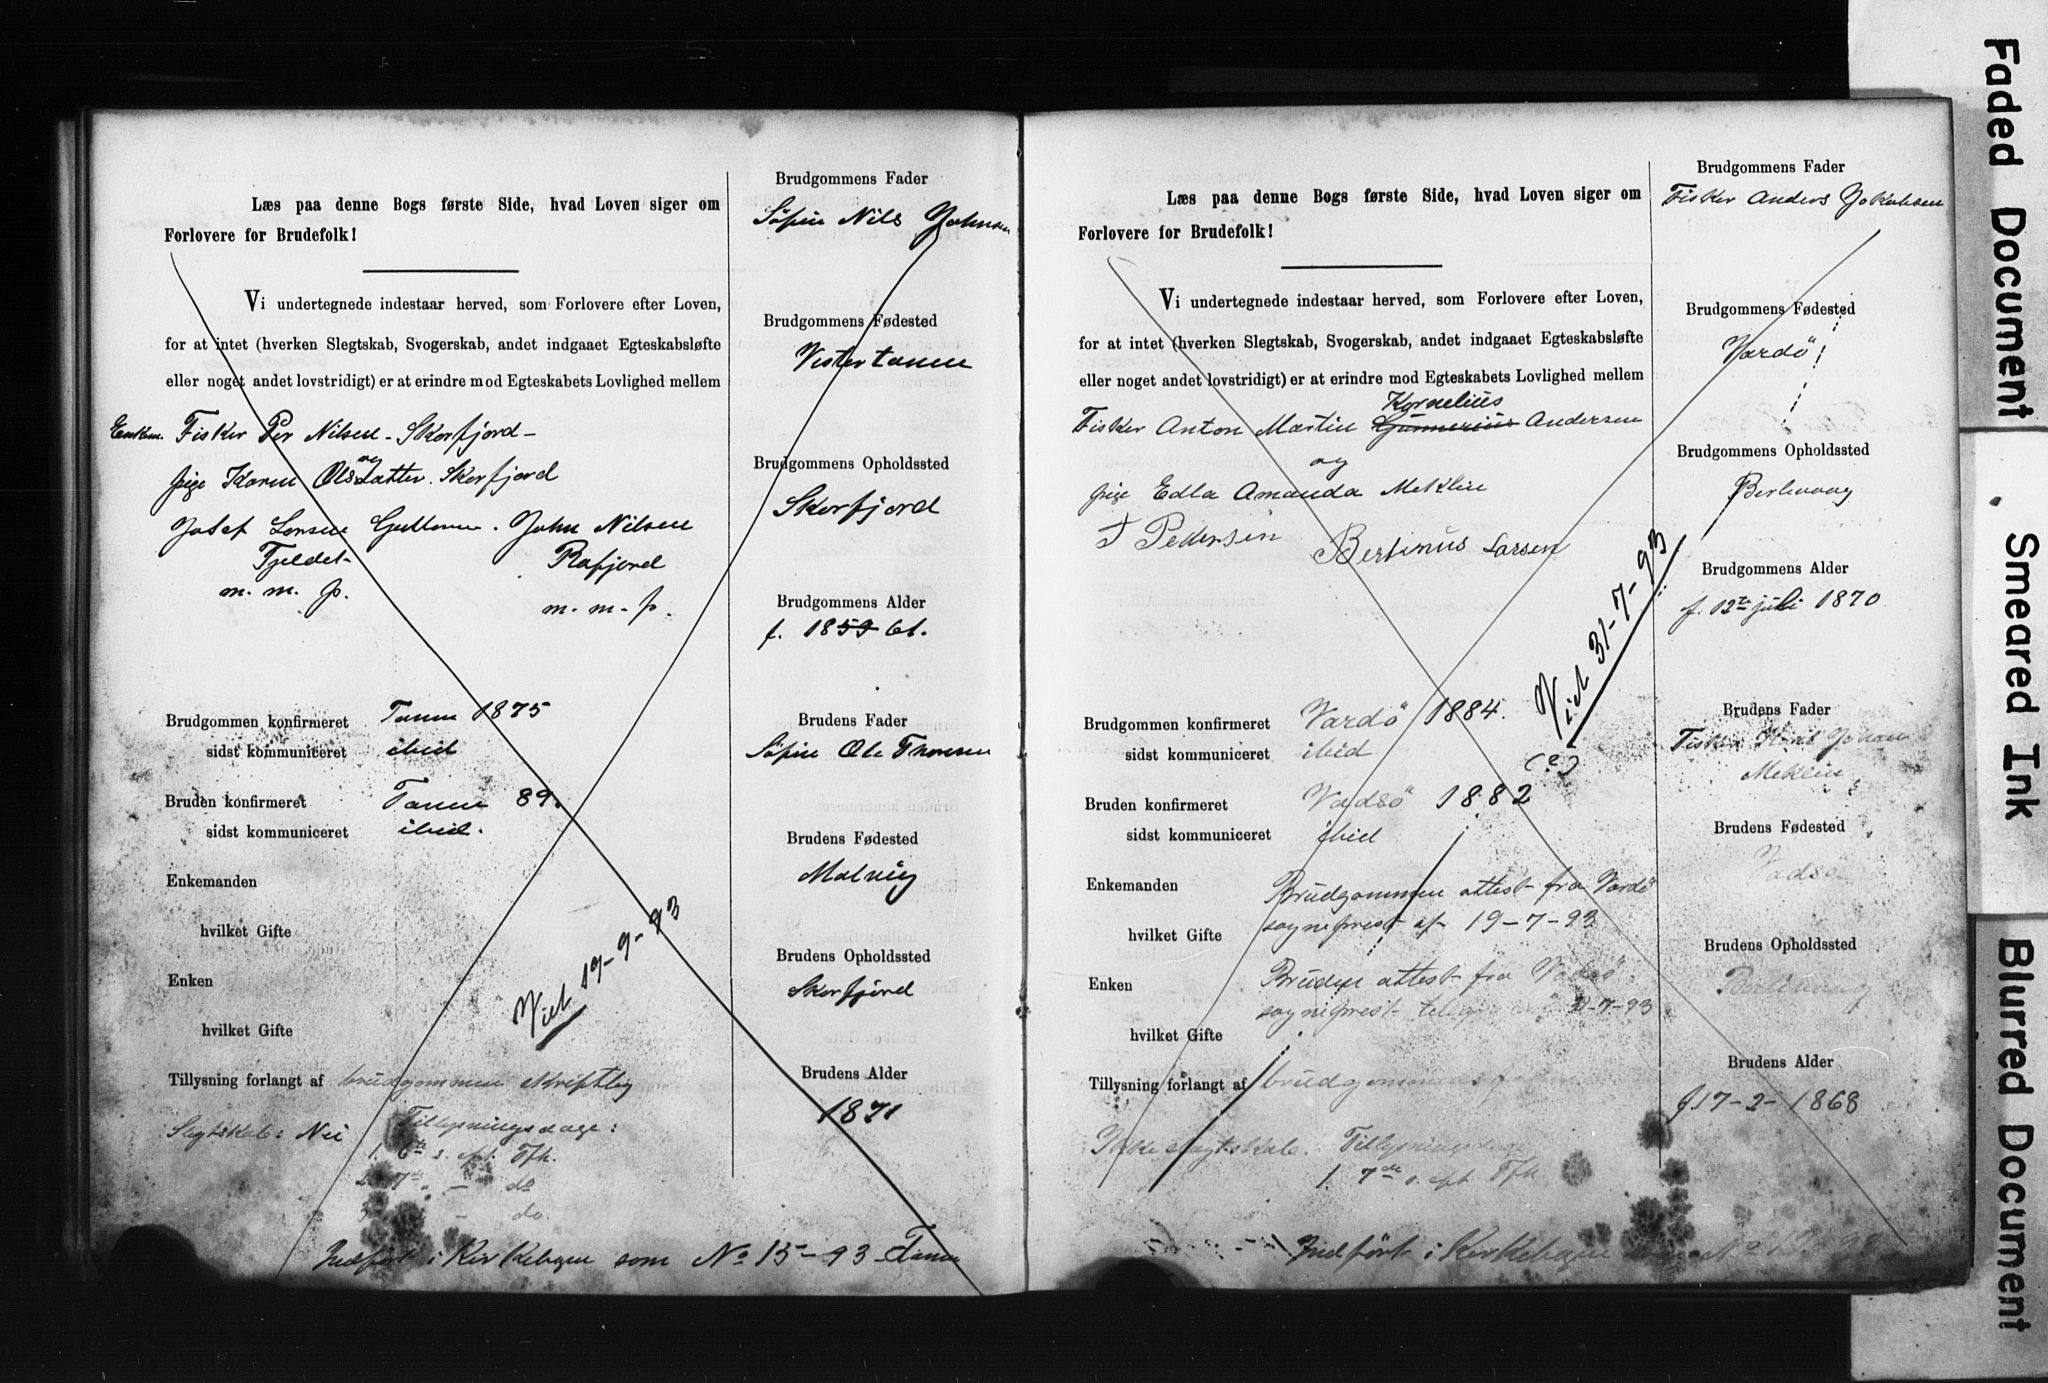 Læs paa denne Bogs første Side, hvad Loven siger om
Forlovere for Brudefolk!
Vi undertegnede indestaar herved, som Forlovere efter Loven,
for at intet (hverken Slegtskab, Svogerskab, andet indgaaet Egteskabsløfte
eller noget andet lovstridigt) er at erindre mod Egteskabets Lovlighed mellem
Enkem. Fisker Per Nilsen - Skorfjord -
og
pige Karen Olsdatter. Skorfjord
Josef Lorsen John Nilsen
Fjeldet Rafjord
m. m. p. m. m. p.
Brudgommen konfirmeret Tanen 1875
sidst kommuniceret ibid
Bruden konfirmeret Tanen 89.
sidst kommuniceret ibid.
Enkemanden
hvilket Gifte
Enken
hvilket Gifte
Viet 19-9-93
Tillysning forlangt af brudgommen skriftlig
Slegtskab: Nei Tillysningsdage:
1. 6te s. eft. Tfh.
2. 7de " - do
3 - do.
Indført i Kirkebogen som No 15-93 Tanen
Brudgommens Fader
Søfin Nils Johnsen
Brudgommens Fødested
Vestertanen
Brudgommens Opholdssted
Skorfjord
Brudgommens Alder
f. 1859 61.
Brudens Fader
Søfin Ole Thomsen
Brudens Fødested
Malvig
Brudens Opholdssted
Skorfjord
Brudens Alder
1871
Læs paa denne Bogs første Side, hvad Loven siger om
Forlovere for Brudefolk!
Vi undertegnede indestaar herved, som Forlovere efter Loven,
for at intet (hverken Slegtskab, Svogerskab, andet indgaaet Egteskabsløfte
eller noget andet lovstridigt) er at erindre mod Egteskabets Lovlighed mellem
Kornelius
Fisker Anton Martin Gunnerius Andersen
og
pige Edla Amanda Meklin
F Pedersen Bertinus Larsen
Viet 31-7-93
(?)
Brudgommen konfirmeret Vardö 1884.
sidst kommuniceret ibid
Bruden konfirmeret Vadsö 1882
sidst kommuniceret ibid
Enkemanden Brudgommen attest fra Vardö
hvilket Gifte sogneprest af 19-7-93
Enken Brudens attest fra Vadsö
hvilket Gifte sogneprest -7-93
Tillysning forlangt af brudgommen
Ikke slegtskab. Tillysning
1. 7de s. eft. Tfh.
Indført i Kirkebogen
Brudgommens Fader
Fisker Anders Jokobsen
Brudgommens Fødested
Vardö
Brudgommens Opholdssted
Berlevaag
Brudgommens Alder
f. 12te juli 1870
Brudens Fader
Fisker Karl Johan
Meklin
Brudens Fødested
Vadsö
Brudens Opholdssted
Berlevaag
Brudens Alder
f 17-2-1868
Faded Document
Smeared Ink
Blurred Document